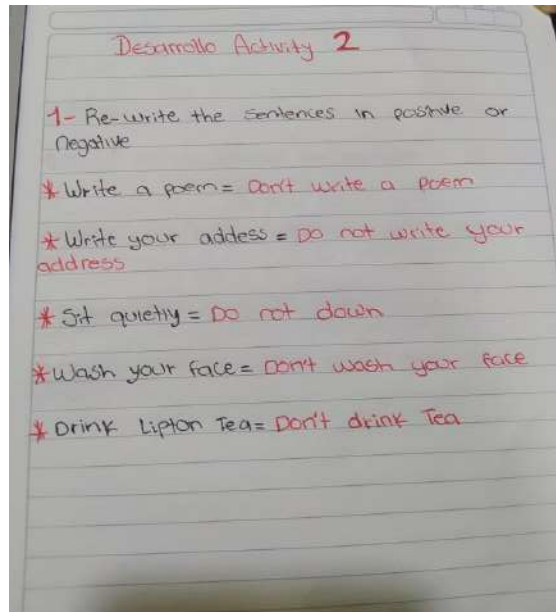 Desarrollo Activity 2
1- Re-write the sentences in positive or
negative
* Write a poem = Don't write a poem
* Write your addess = Do not write your
address
* Sit quietly = Do not down
* Wash your face = Don't wash your face
* Drink Lipton Tea = Don't drink Tea